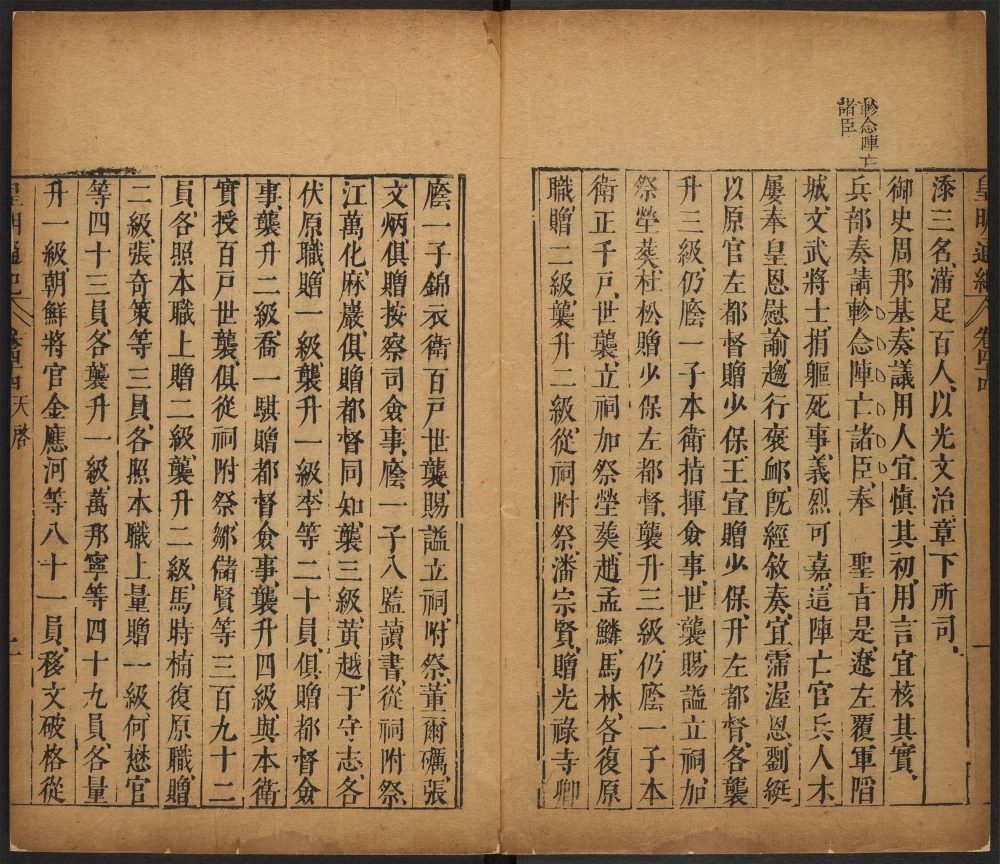 軫念陣亡
諸臣
皇明通紀 卷四十四
添三名滿足百人以光文治章下所司
御史周邦基奏議用人宜慎其初用言宜核其實
兵部奏請軫念陣亡諸臣奉 聖旨是遼左覆軍陷
城文武將士捐軀死事義烈可嘉這陣亡官兵人未
屢奉皇恩慰諭趨行褒卹旣經敘奏宜霈渥恩劉綎
以原官左都督贈少保王宣贈少保升左都督各襲
升三級仍廕一子本衛指揮僉事世襲賜謚立祠加
祭塋葬杜松贈少保左都督襲升三級仍廕一子本
衛正千戶世襲立祠加祭塋葬趙孟麟馬林各復原
職贈二級襲升二級從祠附祭潘宗賢贈光祿寺卿
廕一子錦衣衛百戶世襲賜謚立祠附祭董爾礪張
文炳俱贈按察司僉事廕一子入監讀書從祠附祭
江萬化麻巖俱贈都督同知襲三級黃越于守志各
伏原職贈一級襲升一級李等二十員俱贈都督僉
事襲升二級喬一騏贈都督僉事襲升四級與本衛
實授百戶世襲俱從祠附祭鄒儲賢等三百九十二
員各照本職上贈二級襲升二級馬時楠復原職贈
二級張奇策等三員各照本職上量贈一級何懋官
等四十三員各襲升一級萬邦寧等四十九員各量
升一級朝鮮將官金應河等八十一員移文破格從
皇明通紀 卷四十四 天啓 二